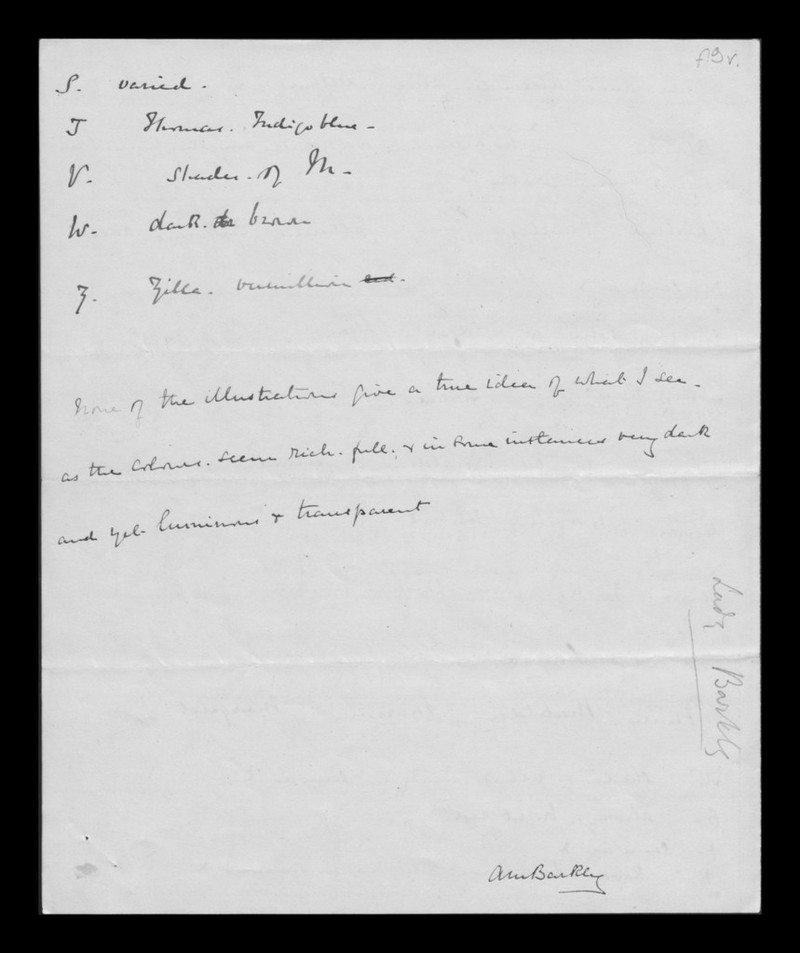 f9v.
S. varied.
T Thomas. Indigo blue -
V. Shades. of M -
W. dark. brown
Z. Zilla. vermillion red.
None of the illustrations give a true idea of what I see -
as the colours. seem rich. full. & in some instances very dark
and yet luminous & transparent
Lady Barkly
AmBarkly